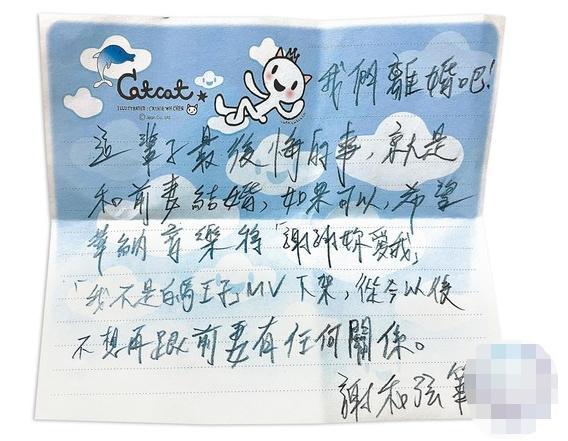 Catcat
ILLUSTRATED : CHUNG WEI CHEN
我們離婚吧!
這輩子最後悔的事，就是
和前妻結婚，如果可以，希望
華納音樂將「謝謝妳愛我」
「我不是白馬王子」MV下架，從今以後
不想再跟前妻有任何關係。
謝和弦 筆